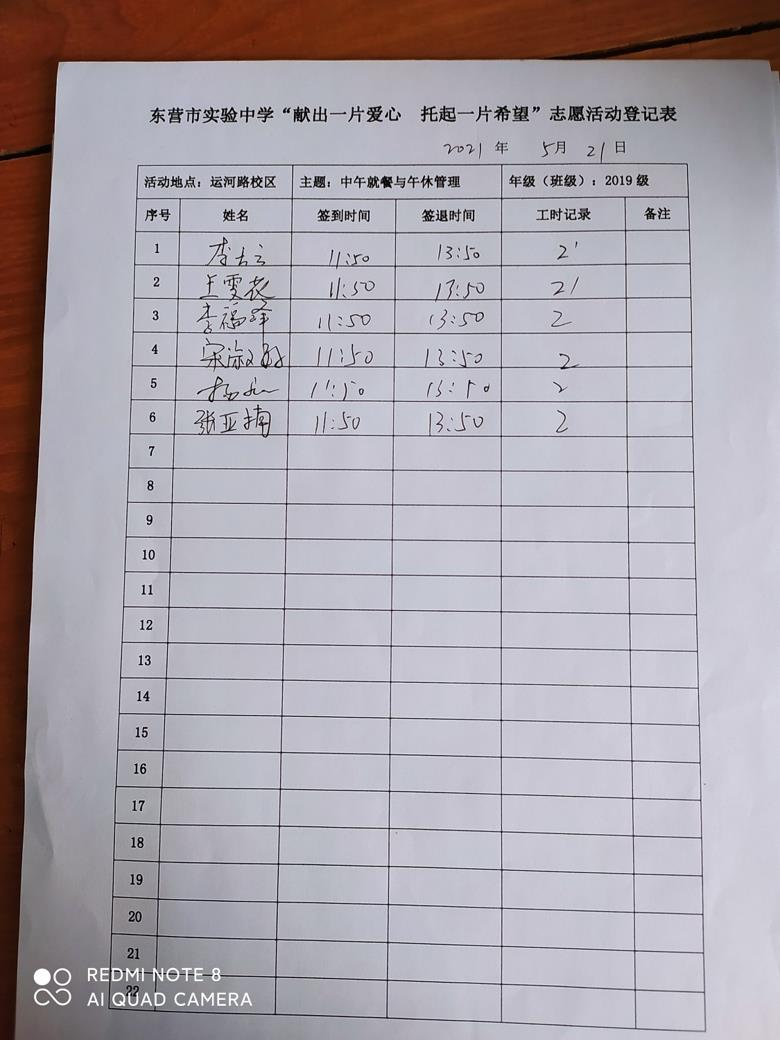 东营市实验中学“献出一片爱心 托起一片希望”志愿活动登记表
2021 年 5月 21日
活动地点：运河路校区 主题：中午就餐与午休管理 年级（班级）：2019 级
序号 姓名 签到时间 签退时间 工时记录 备注
1 李 11:50 13:50 2
2 王雯花 11:50 13:50 2
3 李福 11:50 13:50 2
4 宋淑 11:50 13:50 2
5 杨 11:50 13:50 2
6 张亚楠 11:50 13:50 2
7
8
9
10
11
12
13
14
15
16
17
18
19
20
21
22
REDMI NOTE 8
AI QUAD CAMERA